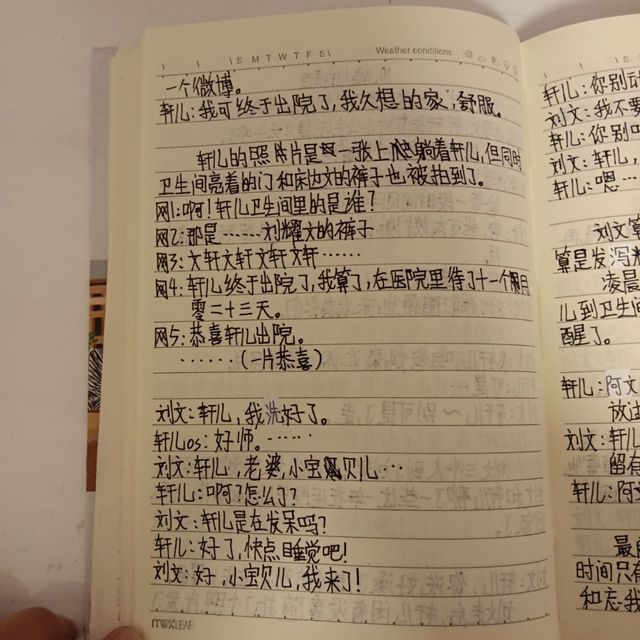 S M T W T F S
Weather conditions
一个微博。
轩儿:我可终于出院了,我久想的家,舒服。
轩儿的照片是一张上他躺着轩儿,但同时
卫生间亮着的门和床边文的裤子也被拍到了。
网1:啊!轩儿卫生间里的是谁?
网2:那是……刘耀文的裤子
网3:文轩文轩文轩文轩……
网4:轩儿终于出院了,我算了,在医院里待了十一个月
零二十三天。
网5:恭喜轩儿出院。
……(一片恭喜)
刘文:轩儿,我洗好了。
轩儿os:好师。……
刘文:轩儿,老婆,小宝贝儿…
轩儿:啊?怎么了?
刘文:轩儿是在发呆吗?
轩儿:好了,快点睡觉吧!
刘文:好,小宝贝儿,我来了!
MAXLEAF
轩儿:你别
刘文:我不要
轩儿:你别
刘文:轩儿,
轩儿:嗯…
刘文
算是发泻
凌晨
儿到卫生间
醒了。
轩儿:阿文
放
刘文:轩儿
留有
轩儿:阿
最
时间只有
和忘我